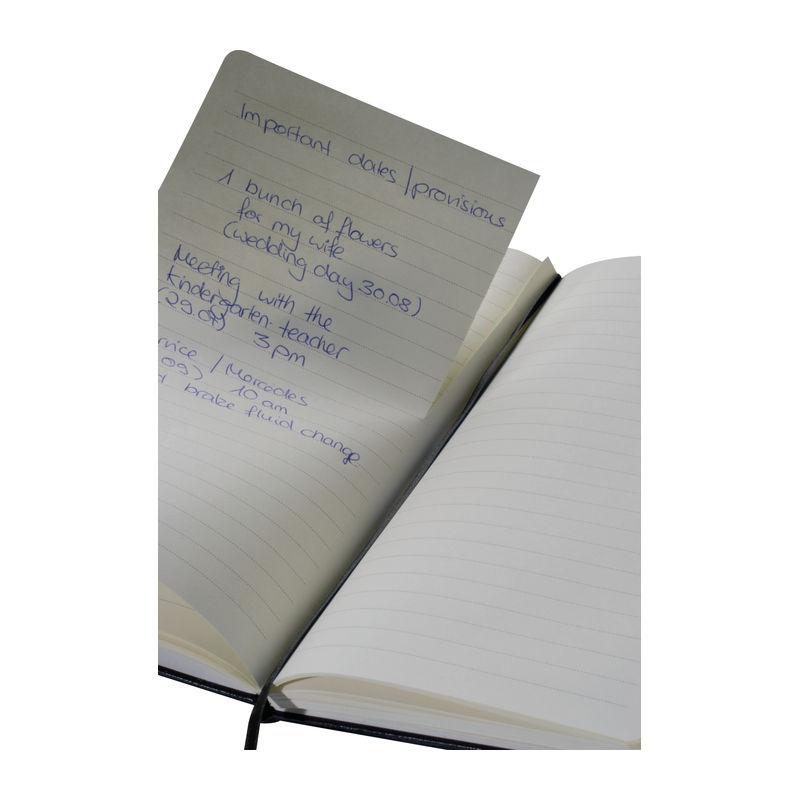 Important dates / provisions
1 bunch of flowers
for my wife
(wedding day 30.08)
Meeting with the
kindergarten teacher
(29.09) 3 pm
/ Mercedes
09) 10 am
brake fluid change